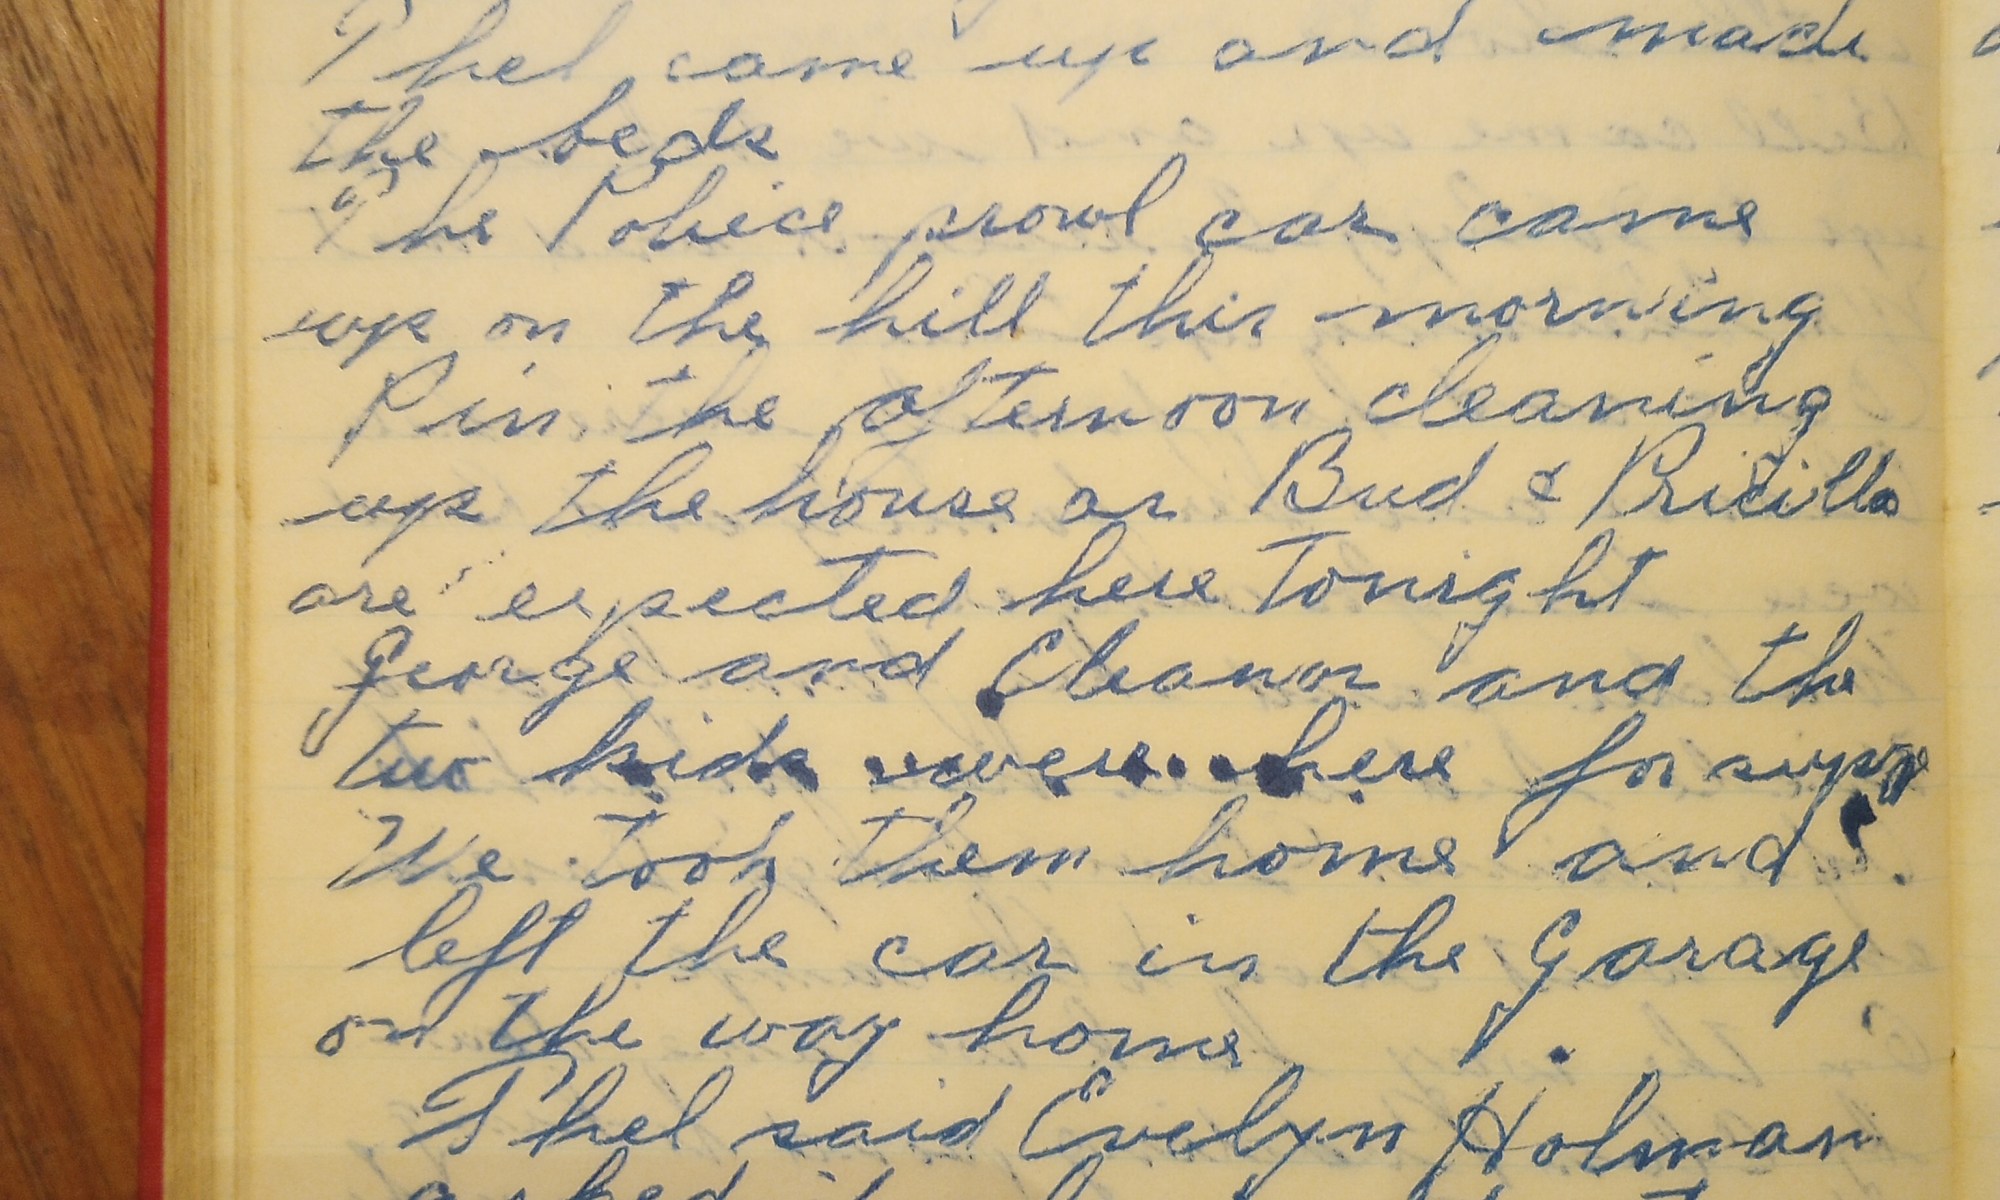 Thel came up and made
the beds
The Police prowl car came
up on the hill this morning
P in the afternoon cleaning
up the house as Bud & Pricilla
are expected here Tonight
George and Eleanor and the
two kids were here for suppe
We took them home and
left the car in the Garage
on the way home
Thel said Evelyn Holman
asked if